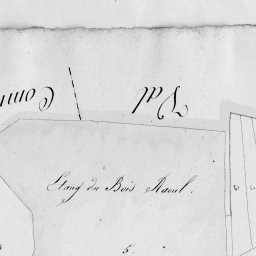 Val
Com
Etang du Bois Raoul.
5.